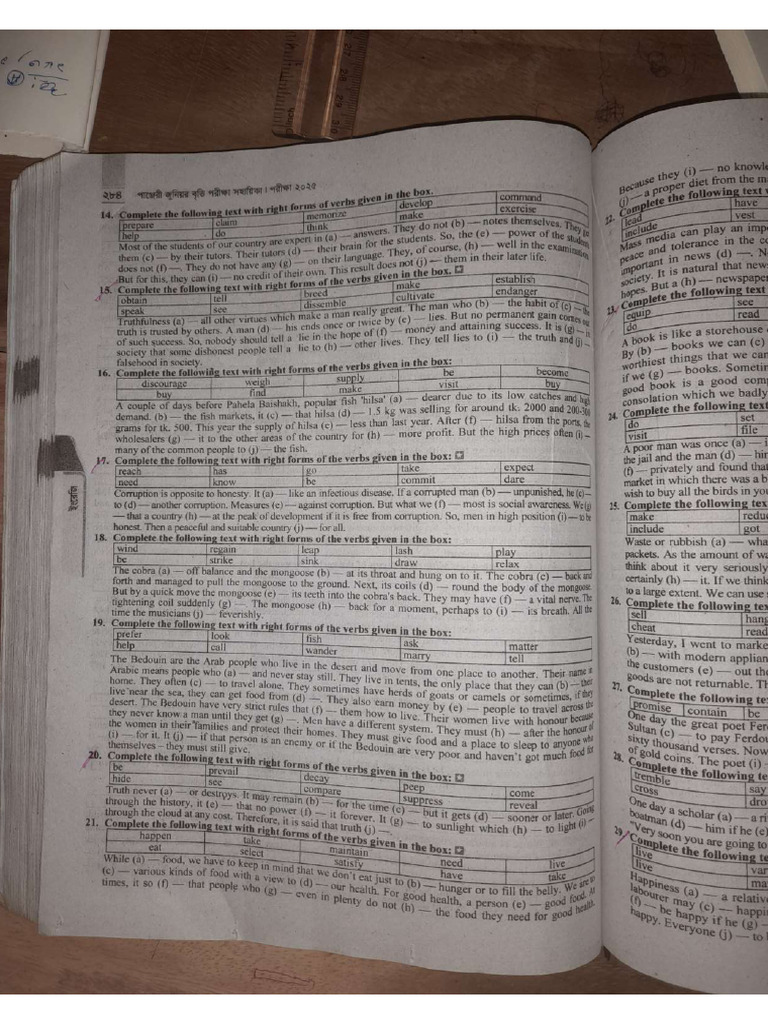 ২৮৪ পাঞ্জেরী জুনিয়র বৃত্তি পরীক্ষা সহায়িকা। পরীক্ষা ২০২৫
14. Complete the following text with right forms of verbs given in the box.
prepare claim memorize develop command
help do think make exercise
Most of the students of our country are expert in (a) — answers. They do not (b) — notes themselves. They get
them (c) — by their tutors. Their tutors (d) — their brain for the students. So, the (e) — power of the students
does not (f) —. They do not have any (g) — on their language. They, of course, (h) — well in the examination
But for this, they can (i) — no credit of their own. This result does not (j) — them in their later life.
15. Complete the following text with right forms of verbs given in the box.
obtain tell breed make establish
speak see dissemble cultivate endanger
Truthfulness (a) — all other virtues which make a man really great. The man who (b) — the habit of (c) — the
truth is trusted by others. A man (d) — his ends once or twice by (e) — lies. But no permanent gain comes out
of such success. So, nobody should tell a lie in the hope of (f) — money and attaining success. It is (g) — in
society that some dishonest people tell a lie to (h) — other lives. They tell lies to (i) — the truth and (j) —
falsehood in society.
16. Complete the following text with right forms of verbs given in the box:
discourage weigh supply be become
buy find make visit buy
A couple of days before Pahela Baishakh, popular fish 'hilsa' (a) — dearer due to its low catches and high
demand. (b) — the fish markets, it (c) — that hilsa (d) — 1.5 kg was selling for around tk. 2000 and 200-300
grams for tk. 500. This year the supply of hilsa (e) — less than last year. After (f) — hilsa from the ports, the
wholesalers (g) — it to the other areas of the country for (h) — more profit. But the high prices often (i) —
many of the common people to (j) — the fish.
17. Complete the following text with right forms of verbs given in the box:
reach has go take expect
need know be commit dare
Corruption is opposite to honesty. It (a) — like an infectious disease. If a corrupted man (b) — unpunished, he (c) —
to (d) — another corruption. Measures (e) — against corruption. But what we (f) — most is social awareness. We (g)
— that a country (h) — at the peak of development if it is free from corruption. So, men in high position (i) — to be
honest. Then a peaceful and suitable country (j) — for all.
ইংরেজি
18. Complete the following text with right forms of verbs given in the box:
wind regain leap lash play
be strike sink draw relax
The cobra (a) — off balance and the mongoose (b) — at its throat and hung on to it. The cobra (c) — back and
forth and managed to pull the mongoose to the ground. Next, its coils (d) — round the body of the mongoose.
But by a quick move the mongoose (e) — its teeth into the cobra's back. They may have (f) — a vital nerve. The
tightening coil suddenly (g) —. The mongoose (h) — back for a moment, perhaps to (i) — its breath. All the
time the musicians (j) — feverishly.
19. Complete the following text with right forms of the verbs given in the box:
prefer look fish ask matter
help call wander marry tell
The Bedouin are the Arab people who live in the desert and move from one place to another. Their name in
Arabic means people who (a) — and never stay still. They live in tents, the only place that they can (b) — their
home. They often (c) — to travel alone. They sometimes have herds of goats or camels or sometimes, if they
live near the sea, they can get food from (d) —. They also earn money by (e) — people to travel across the
desert. The Bedouin have very strict rules that (f) — them how to live. Their women live with honour because
they never know a man until they get (g) —. Men have a different system. They must (h) — after the honour of
the women in their families and protect their homes. They must give food and a place to sleep to anyone who
(i) — for it. It (j) — if that person is an enemy or if the Bedouin are very poor and haven't got much food for
themselves – they must still give.
20. Complete the following text with right forms of the verbs given in the box:
be prevail decay peep come
hide see compare suppress reveal
Truth never (a) — or destroys. It may remain (b) — for the time (c) — but it gets (d) — sooner or later. Going
through the history, it (e) — that no power (f) — it forever. It (g) — to sunlight which (h) — to light (i) —
through the cloud at any cost. Therefore, it is said that truth (j) —.
21. Complete the following text with right forms of the verbs given in the box:
happen take maintain need live
eat select satisfy have take
While (a) — food, we have to keep in mind that we don't eat just to (b) — hunger or to fill the belly. We are to
(c) — various kinds of food with a view to (d) — our health. For good health, a person (e) — good food. At
times, it so (f) — that people who (g) — even in plenty do not (h) — the food they need for good health.
Because they (i) — no
(j) — a proper diet from the
22. Complete the following text
lead have
include vest
Mass media can play an
peace and tolerance in the
important in news (d) —.
society. It is natural that
hopes. But a (h) — newspaper
23. Complete the following text
equip see
do read
A book is like a storehouse
By (b) — books we can (c)
worthiest things that we can
if we (g) — books.
good book is a good
consolation which we badly
24. Complete the following text
do set
visit file
A poor man was once (a) —
the jail and the man (d) —
(f) — privately and found that
market in which there was a
wish to buy all the birds in
25. Complete the following
make
include got
Waste or rubbish (a) —
packets. As the amount of
think about it very seriously
certainly (h) — it. If we think
to a large extent. We can use
26. Complete the following
sell
cheat read
Yesterday, I went to
(b) — with modern
the customers (e) — out
goods are not returnable.
27. Complete the following
promise contain be
One day the great poet
Sultan (c) — to pay
sixty thousand verses.
of gold coins. The poet (i) -
28. Complete the following
tremble say
cross
One day a scholar (a) — a
boatman (d) — him if he (e)
"Very soon you are going to
29. Complete the following
live
live
Happiness (a) — a
labourer may (c) —
(f) — be happy if he (g) —
happy. Everyone (j) — to